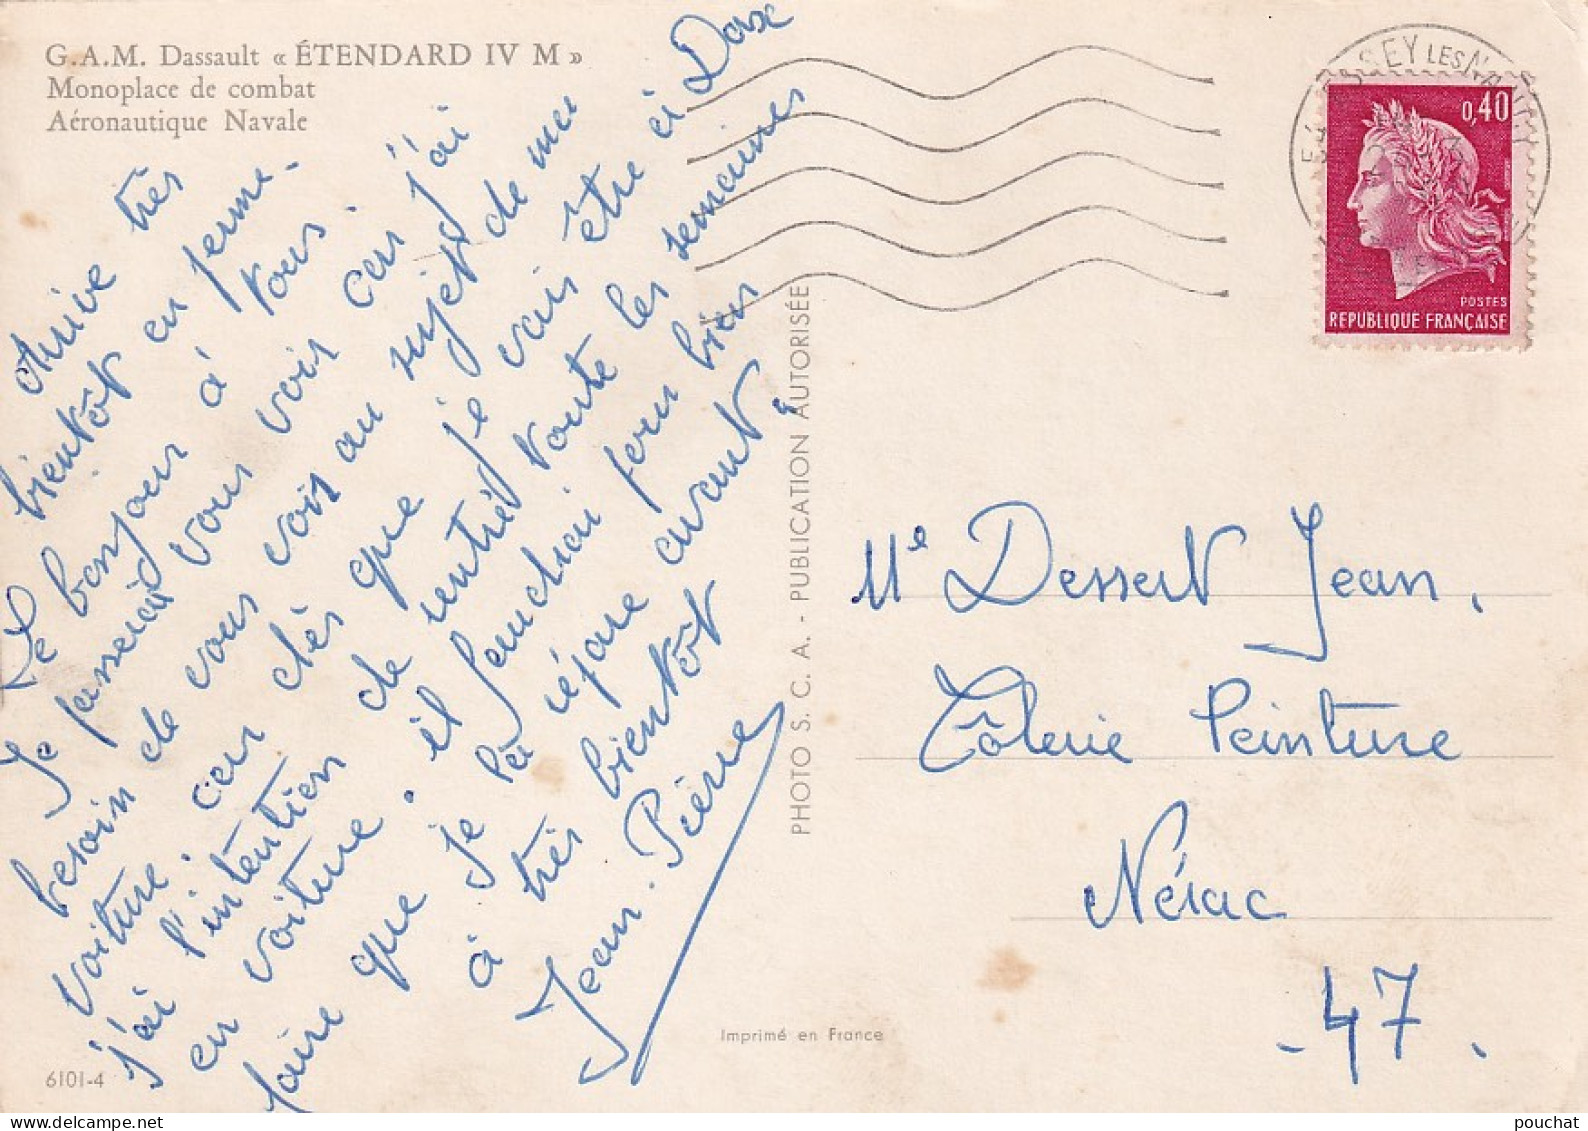 G.A.M. Dassault « ÉTENDARD IV M »
Monoplace de combat
Aéronautique Navale
Arrive très
bientôt en perme.
Le bonjour à tous.
Je passerai vous voir car j'ai
besoin de vous voir au sujet de ma
voiture. car dès que je vais être à Dax
j'ai l'intention de rentré toute les semaines
en voiture. il faudrai bien
faire que je la répare avant.
à très bientôt
Jean-Pierre
PHOTO S. C. A. - PUBLICATION AUTORISÉE
Imprimé en France
6101-4
SEY LES NANCY
0,40
POSTES
REPUBLIQUE FRANÇAISE
Me Dessert Jean.
Tôlerie Peinture
Nérac
.47.